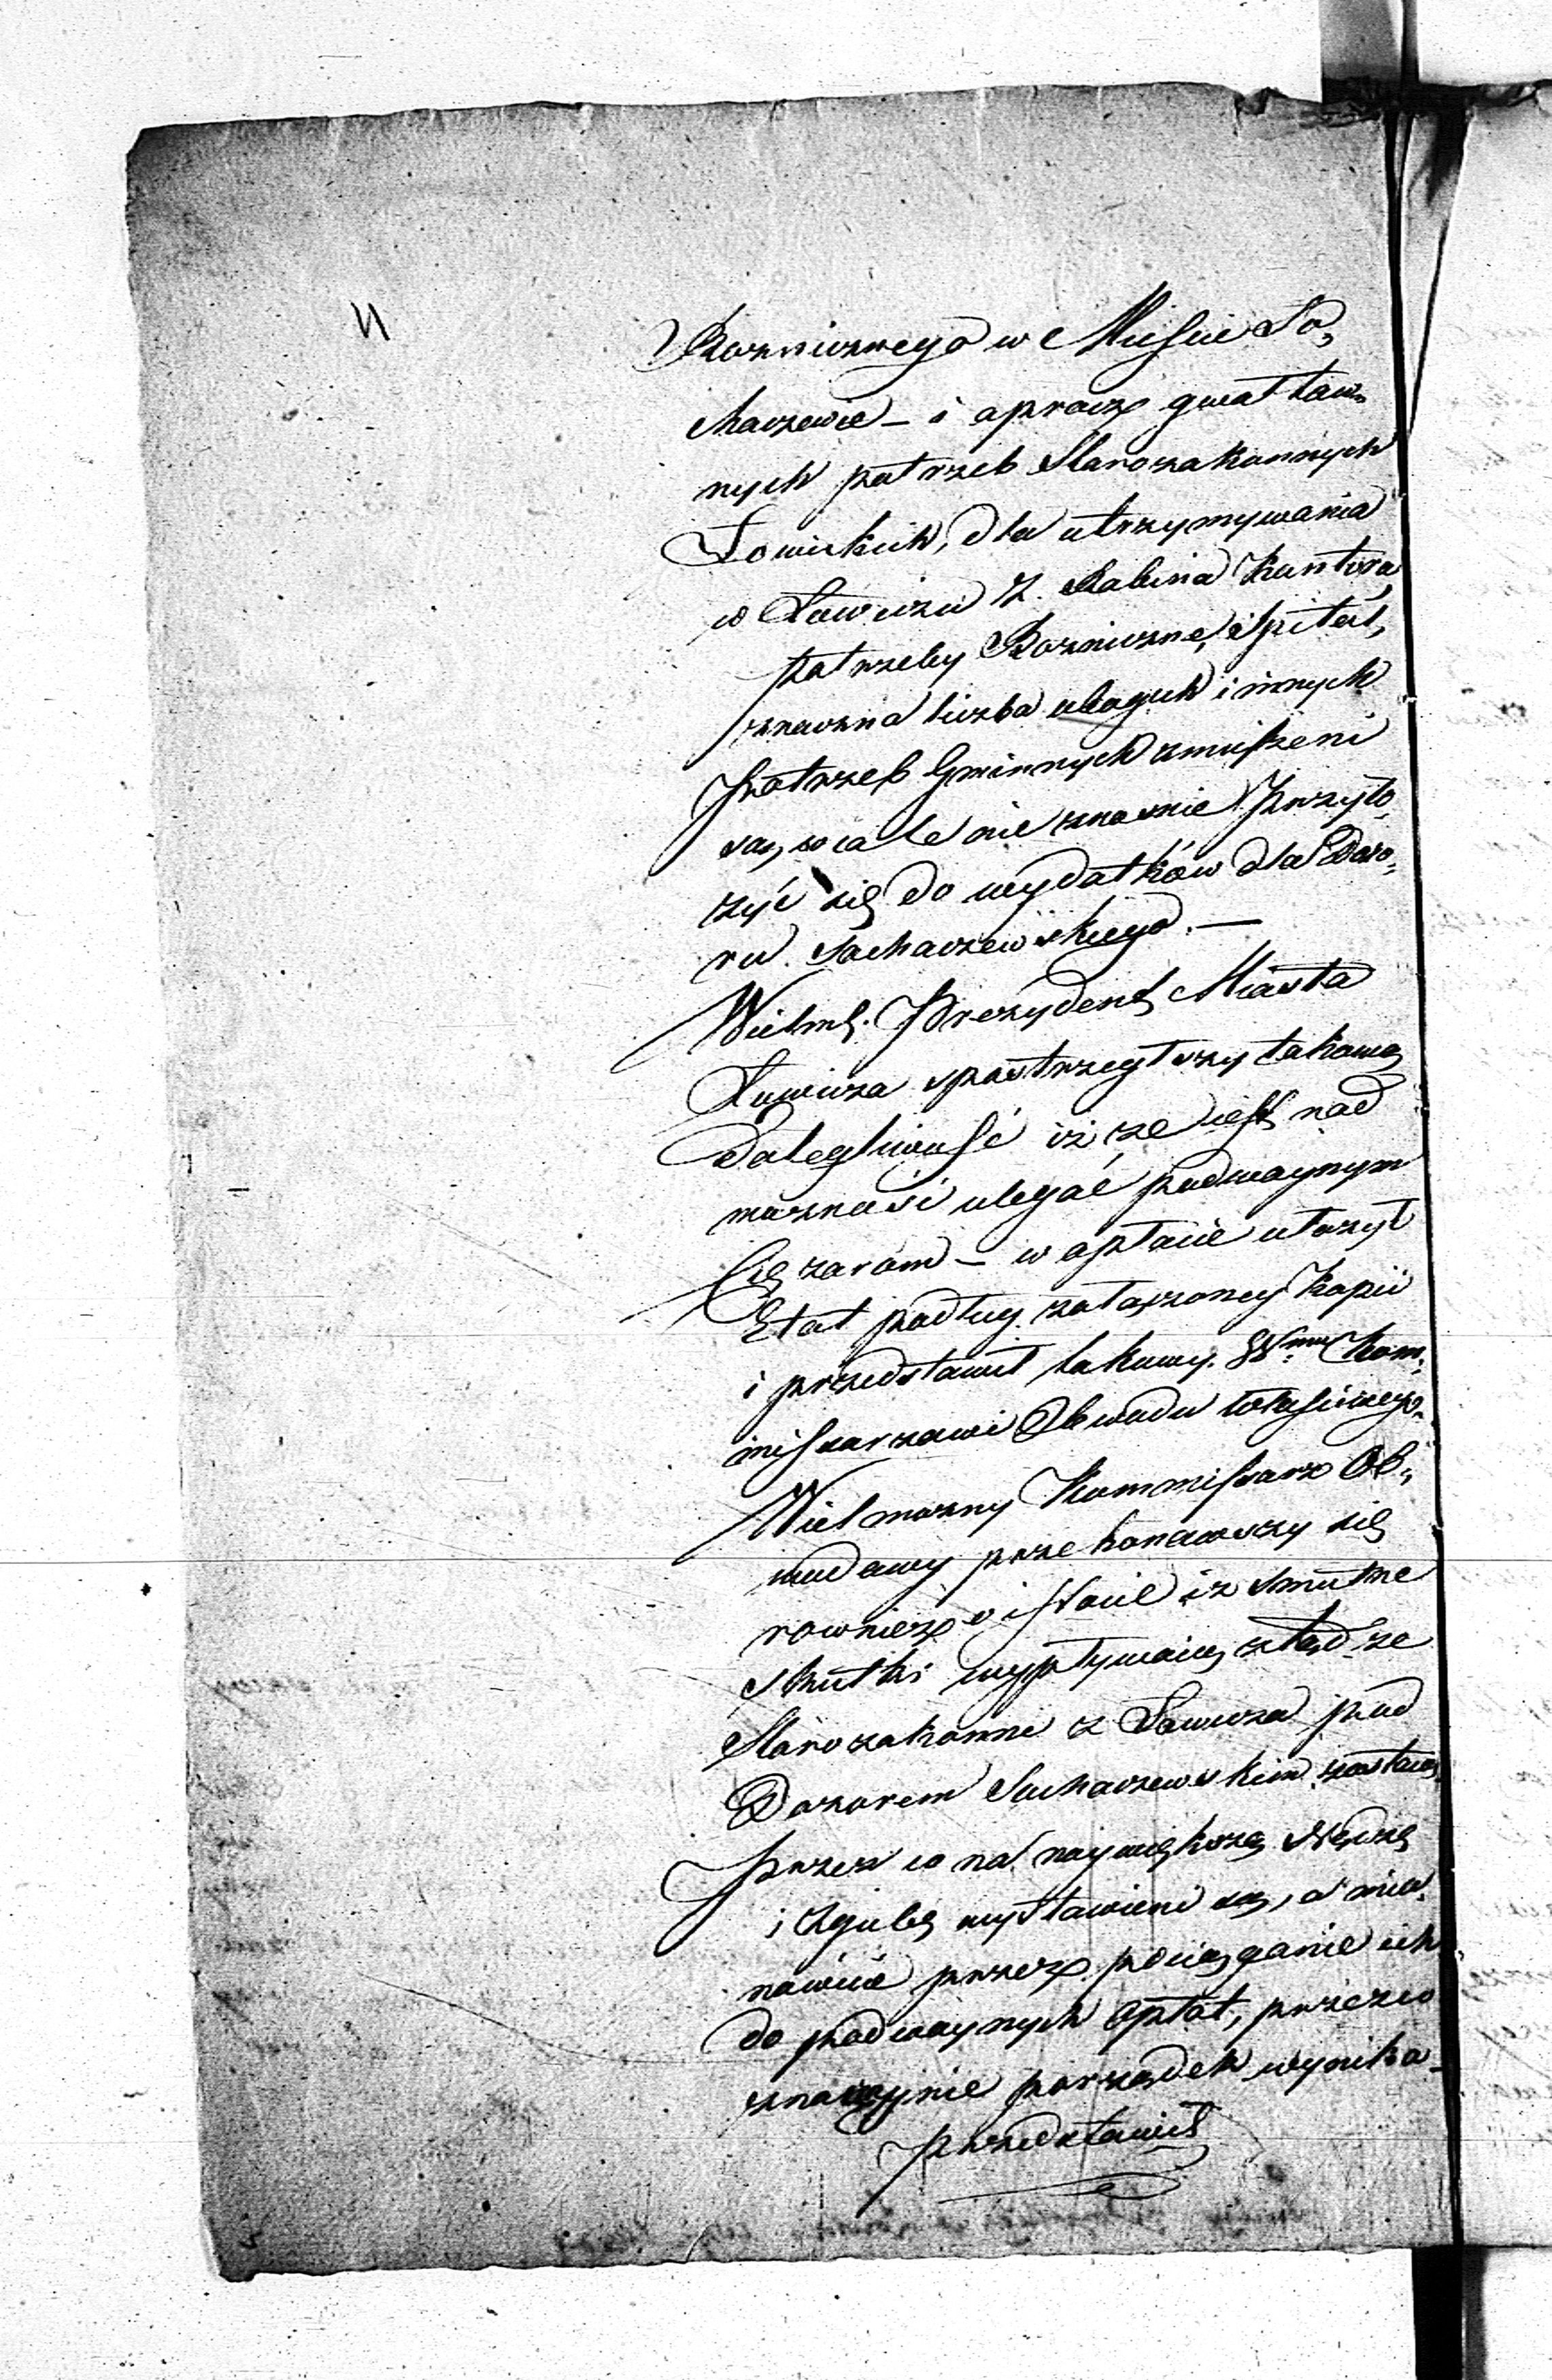 Boznicznego w Mieście So,
chaczewie – i oprocz gwałtow,
nych potrzeb Starozakonnych
Łowickich, dla utrzymywania
w Łowiczu Z. Rabina Kantora,
potrzeby Boznicznę, Szpital,
znaczna liczba ubogich i innych
potrzeb Gminnych zmuszeni
są, wcale nie znośnie Przyło,
zyć się do wydatków dla Dozo,
ru Sochaczewskiego. —
Wielmż. Prezydent Miasta
Łowicza spostrzegłszy takową
Dolegliwość iż ze iest nad
moznosć ulegać podwoynym
Cięzarom – w opłacie ułozył
Etat podług załączoney Kopii
i przedstawił takowy. Wmu Kom,
missarzowi Obwodu tuteyszego.
Wielmozny Kommissarz Ob,
wodowy przekonawszy się
rowniez o istocie iz smutne
skutki wypływaią ztąd ze
Starozakonni z Łowicza pod
Dozorem Sochaczewskim zostaią,
przez co na naywiększą Nędzę
i zgubę wystawieni są, a mia,
nowicie przez pociąganie ich
do podwoynych Opłat, przez co
znacznie porządek wynika –
przedstawił